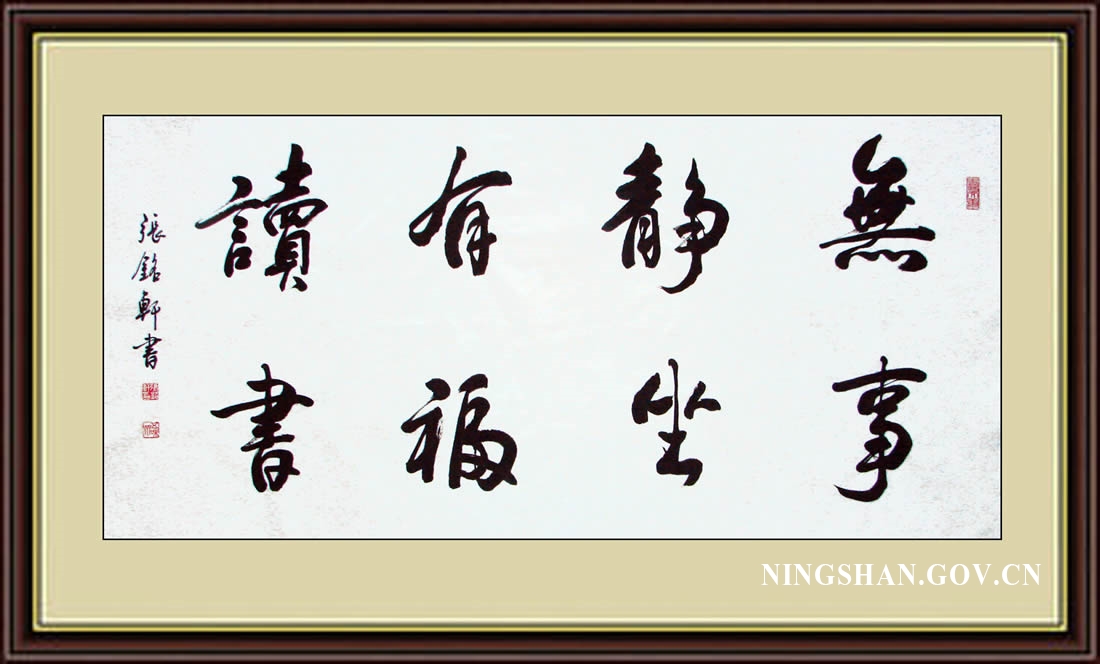 無事
静坐
有福
讀書
張銘軒書
NINGSHAN.GOV.CN